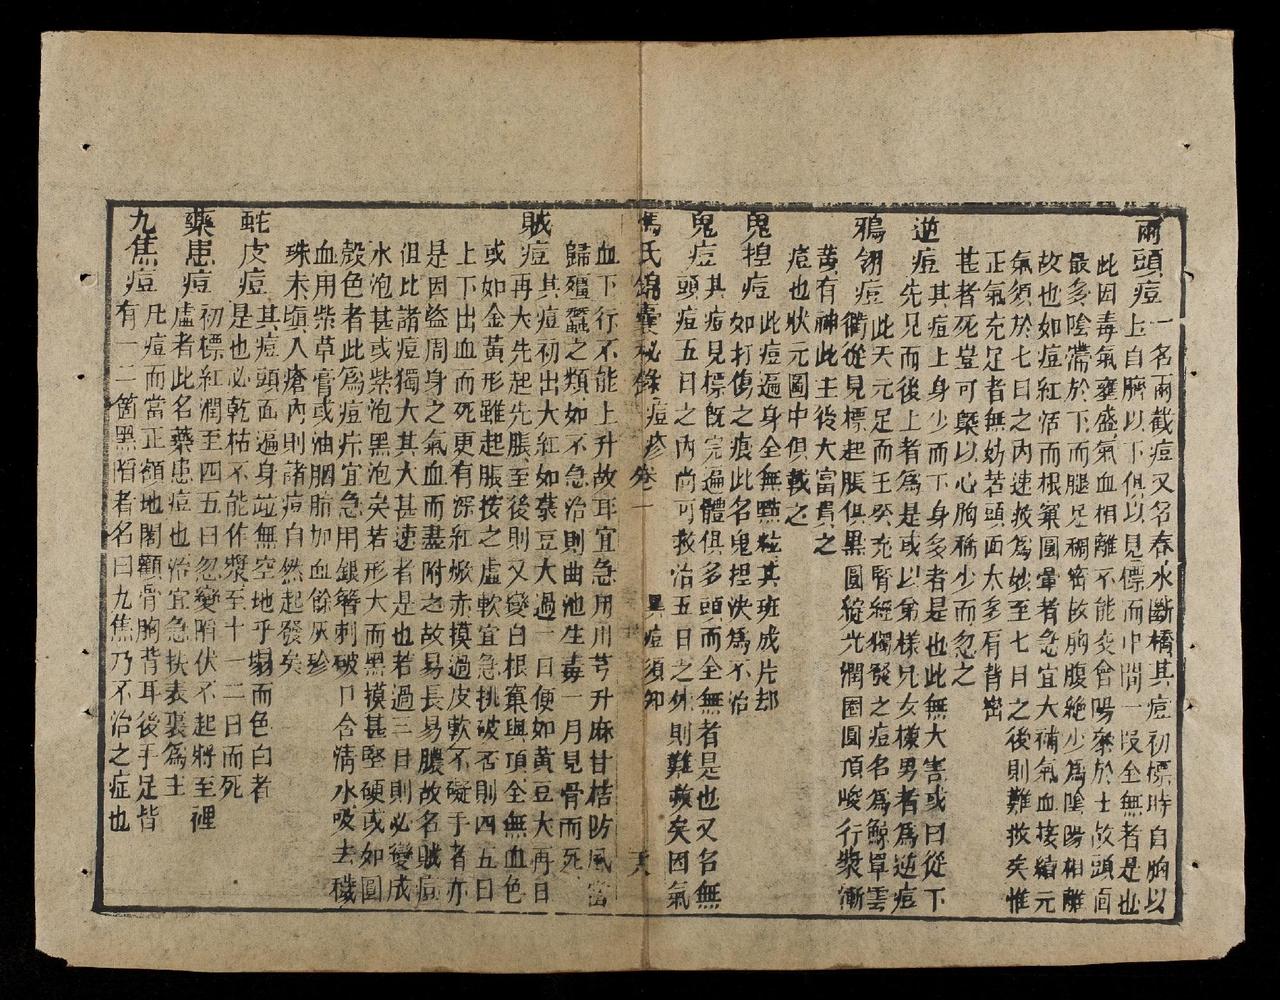 兩頭痘一名兩截痘又名春水斷橋其痘初標時自胸以
上自臍以下俱以見標而中間一段全無者是也
此因毒氣壅盛氣血相離不能交會陽聚於上故頭面
最多陰滯於下而腿足稠密故胸腹絶少為陰陽相離
故也如痘紅活而根窠圓暈者急宜大補氣血接續元
氣須於七日之內速救為妙至七日之後則難救矣惟
正氣充足者無妨若頭面太多肩背密
甚者死豈可槩以心胸稀少而忽之
逆痘其痘上身少而下身多者是也此無大害或曰從下
先兄而後上者為是或以弟樣兄女樣男者為逆痘
鴉翎痘此天元足而壬癸充腎經獨發之痘名為鯨單雲
衢從見標起脹俱黑圓綻光潤圈圓頂峻行漿漸
黃有神此主後大富貴之
痘也狀元圖中俱載之
鬼捏痘此痘遍身全無點粒其班成片却
如打傷之痕此名鬼捏決為不治
鬼痘其痘見標旣完遍體俱多頭而全無者是也又名無
頭痘五日之內尚可救治五日之外則難救矣因氣
馮氏錦囊秘錄痘疹卷一 異痘須知
血下行不能上升故耳宜急用川芎升麻甘桔防風當
歸殭蠶之類如不急治則曲池生毒一月見骨而死
賊痘其痘初出大紅如菉豆大過一日便如黃豆大再日
再大先起先脹至後則又變白根窠與頂全無血色
或如金黃形雖起脹按之虛軟宜急挑破否則四五日
上下出血而死更有深紅焮赤摸過皮軟不礙手者亦
是因盜周身之氣血而盡附之故易長易膿故名賊痘
但比諸痘獨大其大甚速者是也若過三日則必變成
水泡甚或柴泡黑泡矣若形大而黑摸甚堅硬或如圓
殼色者此為痘疔宜急用銀簪刺破口含清水吸去穢
血用柴草膏或油胭脂加血餘灰珍
珠末塡入瘡內則諸痘自然起發矣
蛇皮痘其痘頭面遍身竝無空地乎塌而色白者
是也必乾枯不能作漿至十一二日而死
藥患痘初標紅潤至四五日忽變陷伏不起將至裡
虛者此名藥患痘也治宜急扶表裏為主
九焦痘凡痘而當正額地閣顴骨胸背耳後手足皆
有一二箇黑陷者名曰九焦乃不治之症也